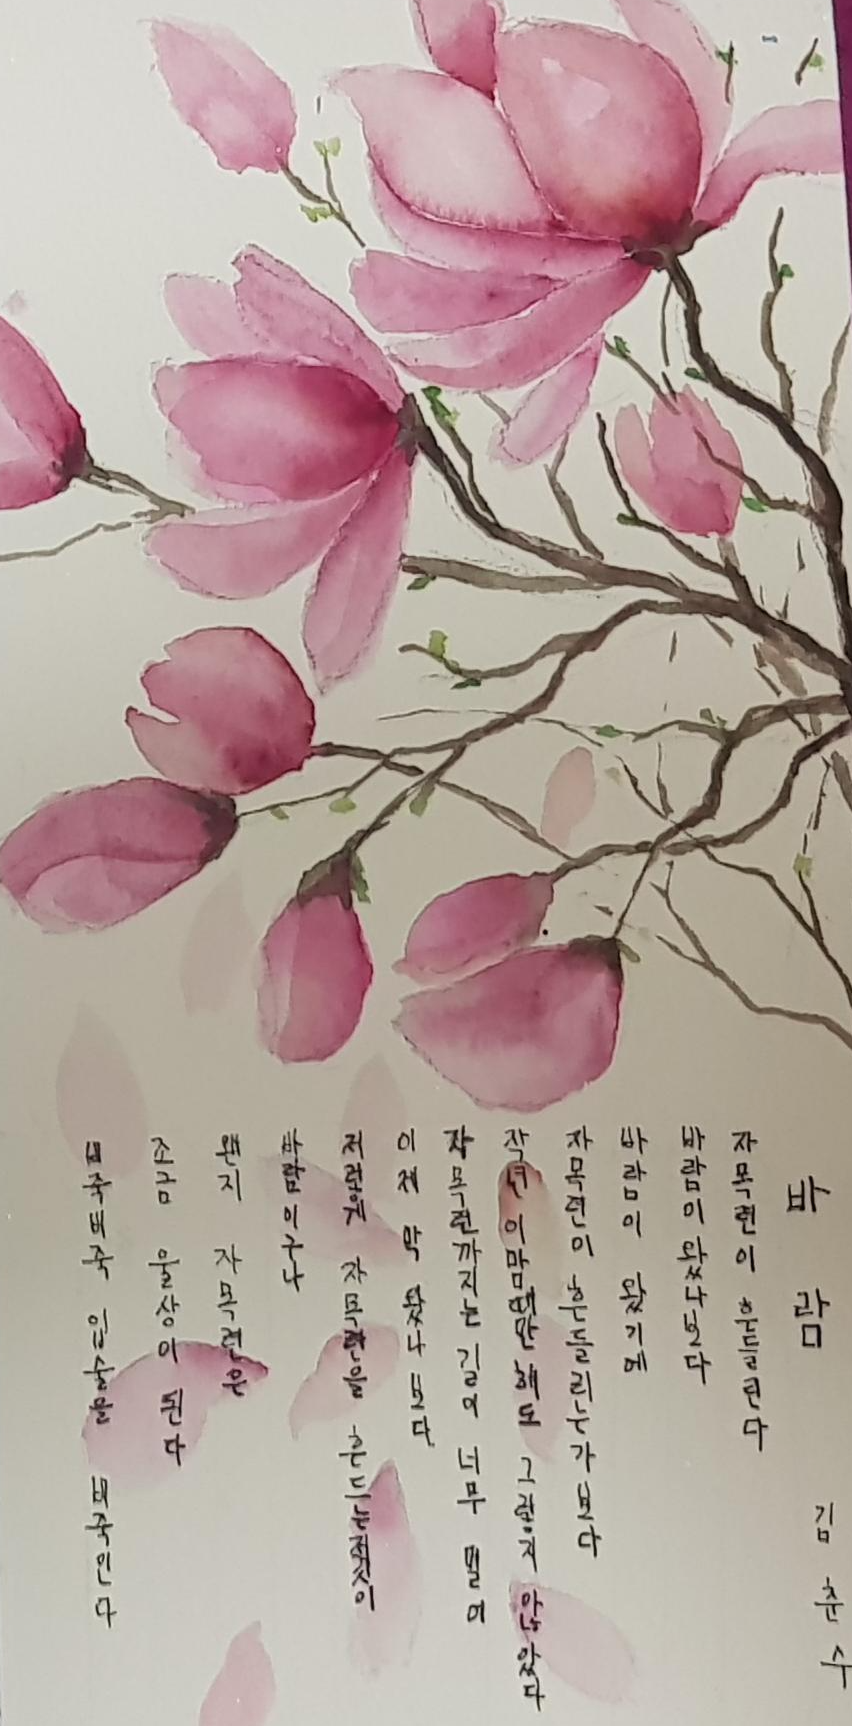 바람
김춘수
자목련이 흔들린다
바람이 왔나보다
바람이 왔기에
자목련이 흔들리는가 보다
작년 이맘때만 해도 그렇지 않았다
자목련까지는 길이 너무 멀어
이제 막 왔나 보다
저렇게 자목련을 흔드는 저것이
바람이구나
왠지 자목련은
조금 울상이 된다
비죽비죽 입술을 비죽인다